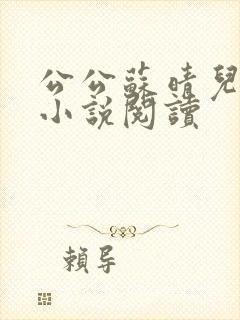 公公蘇晴兒
小說閱讀
賴导